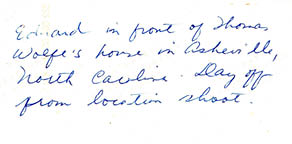 Edward in front of Thomas
Wolfe's house in Asheville,
North Carolina. Day off
from location shoot.